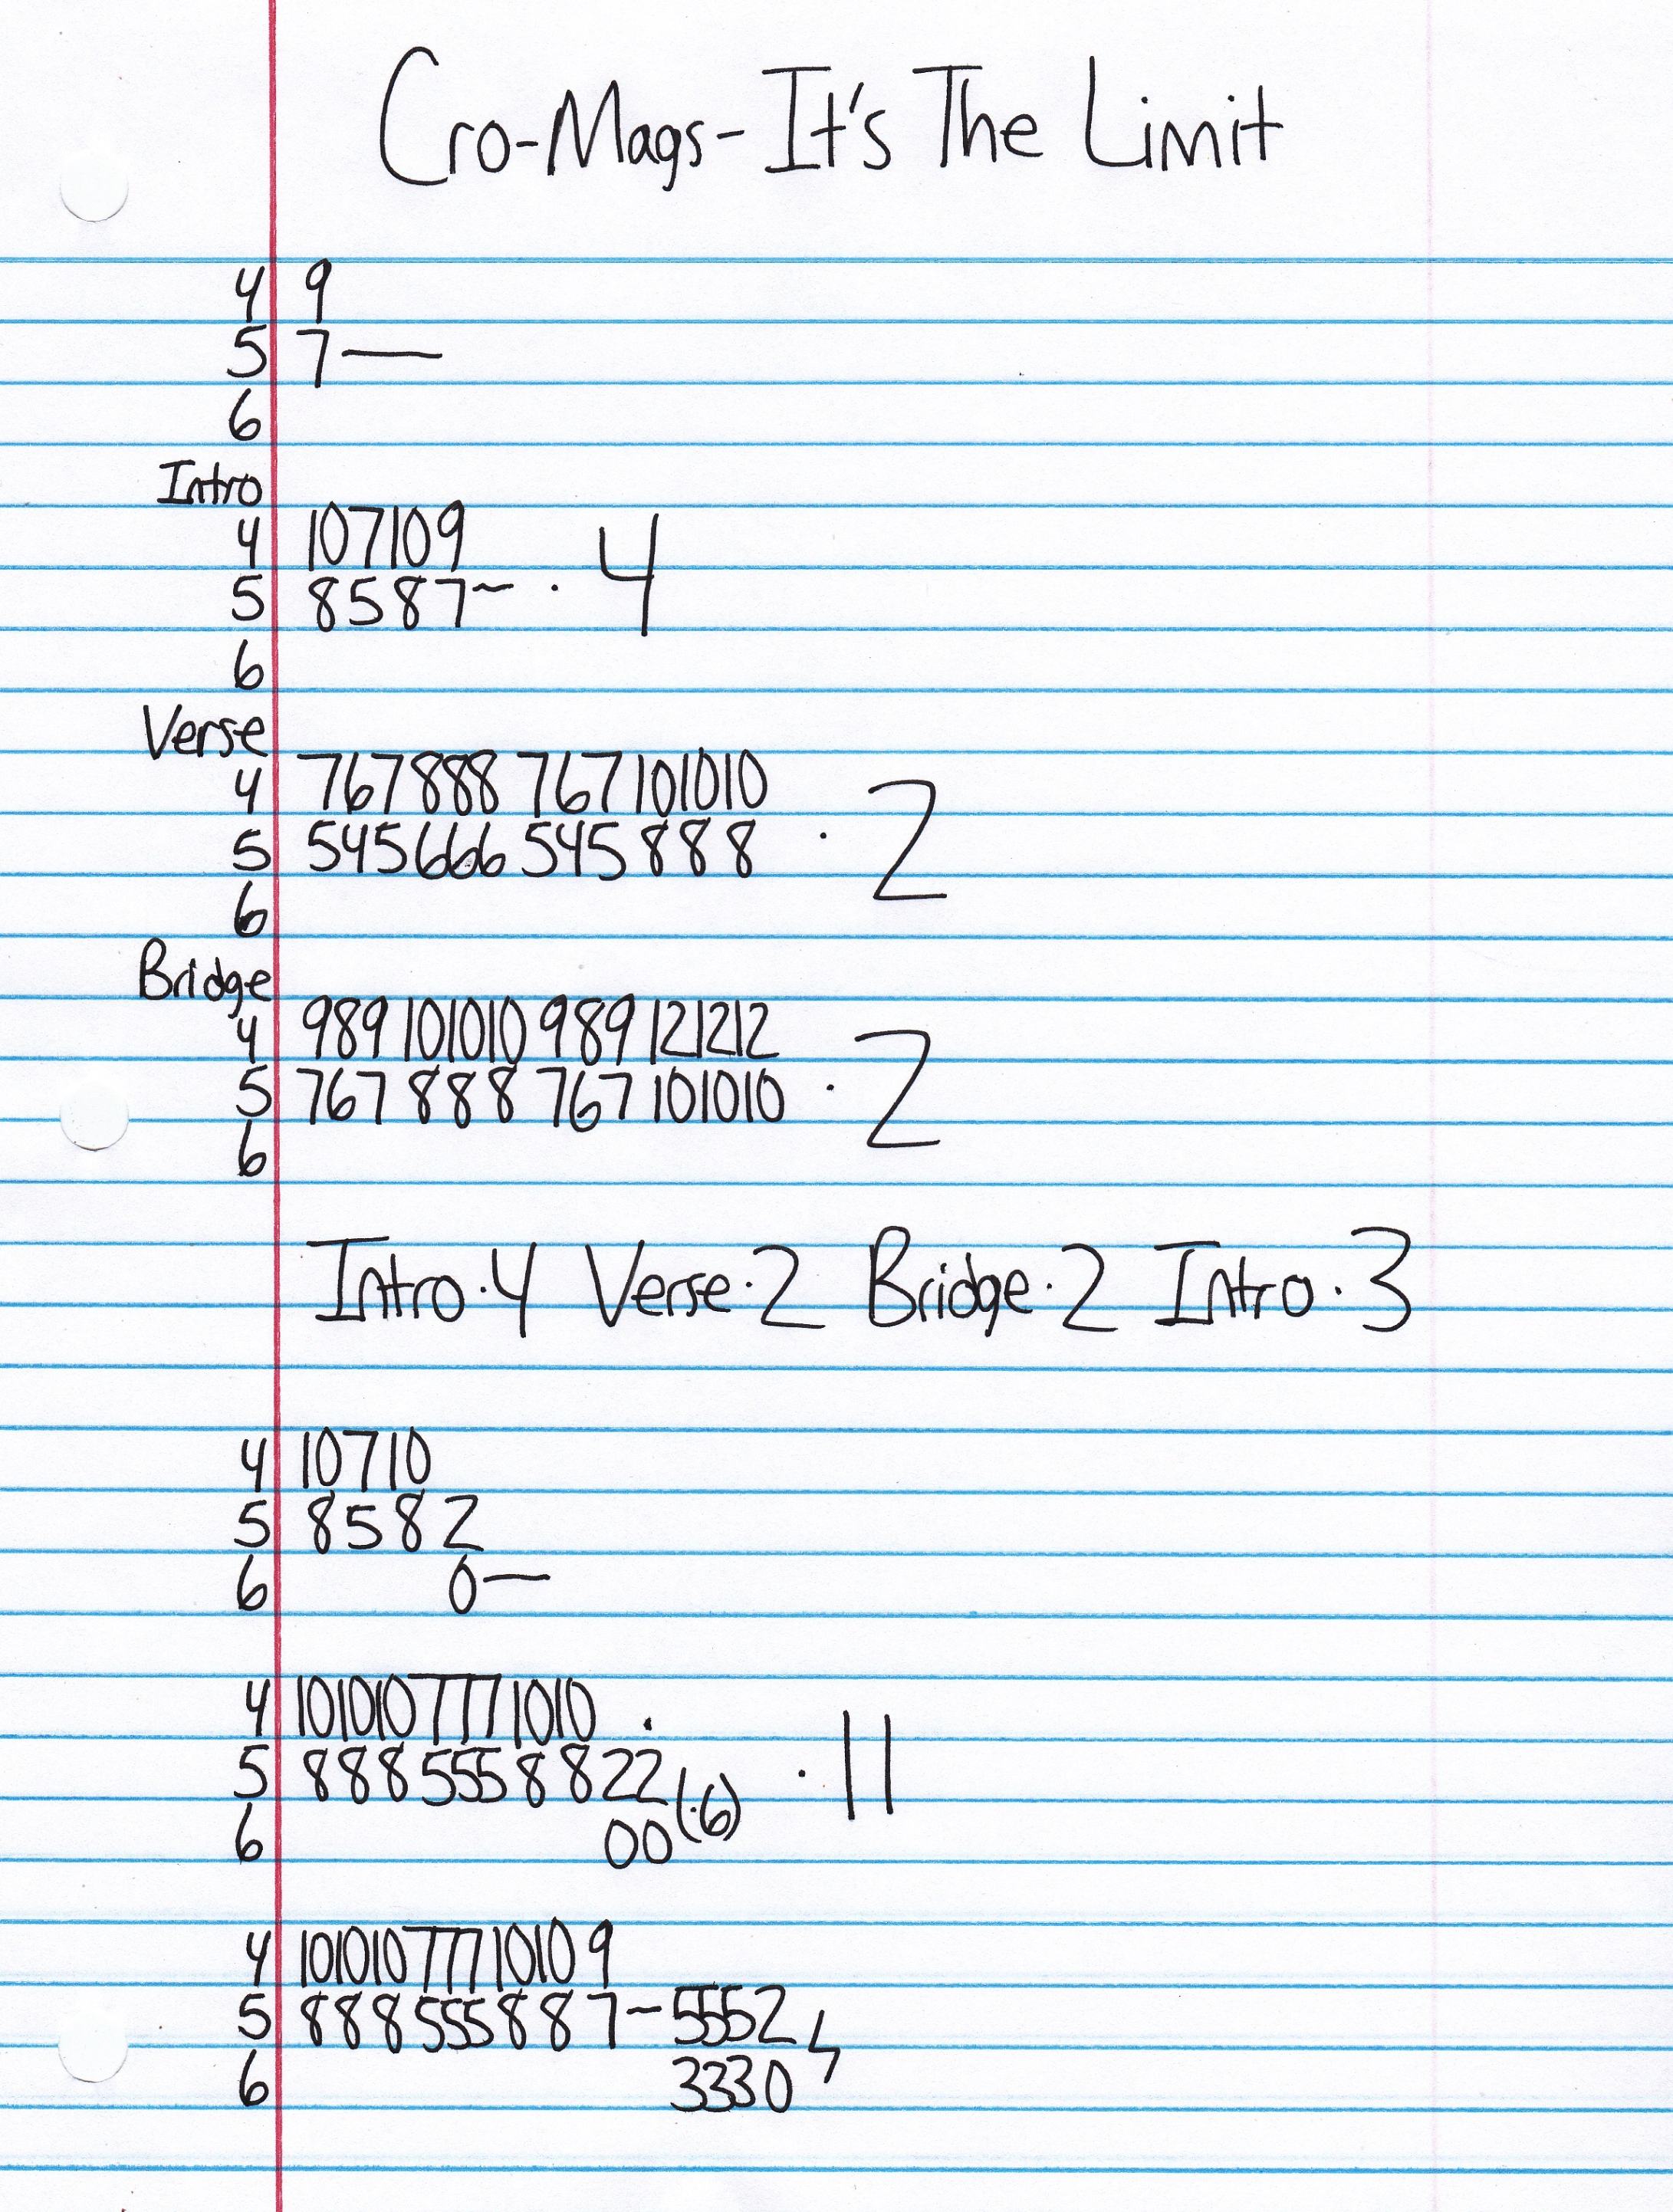 Cro-Mags-It's The Limit
4 9
5 7—
6
Intro
4 107109
5 8587~ · 4
6
Verse
4 767888 767101010
5 545666 545888 · 2
6
Bridge
4 989101010 989121212
5 767888 767101010 · 2
6
Intro·4 Verse·2 Bridge·2 Intro·3
4 10710
5 8582
6 0—
4 1010107771010 .
5 8885558822(·6) · 11
6 00
4 10101077710109
5 888555887~5552
6 3330